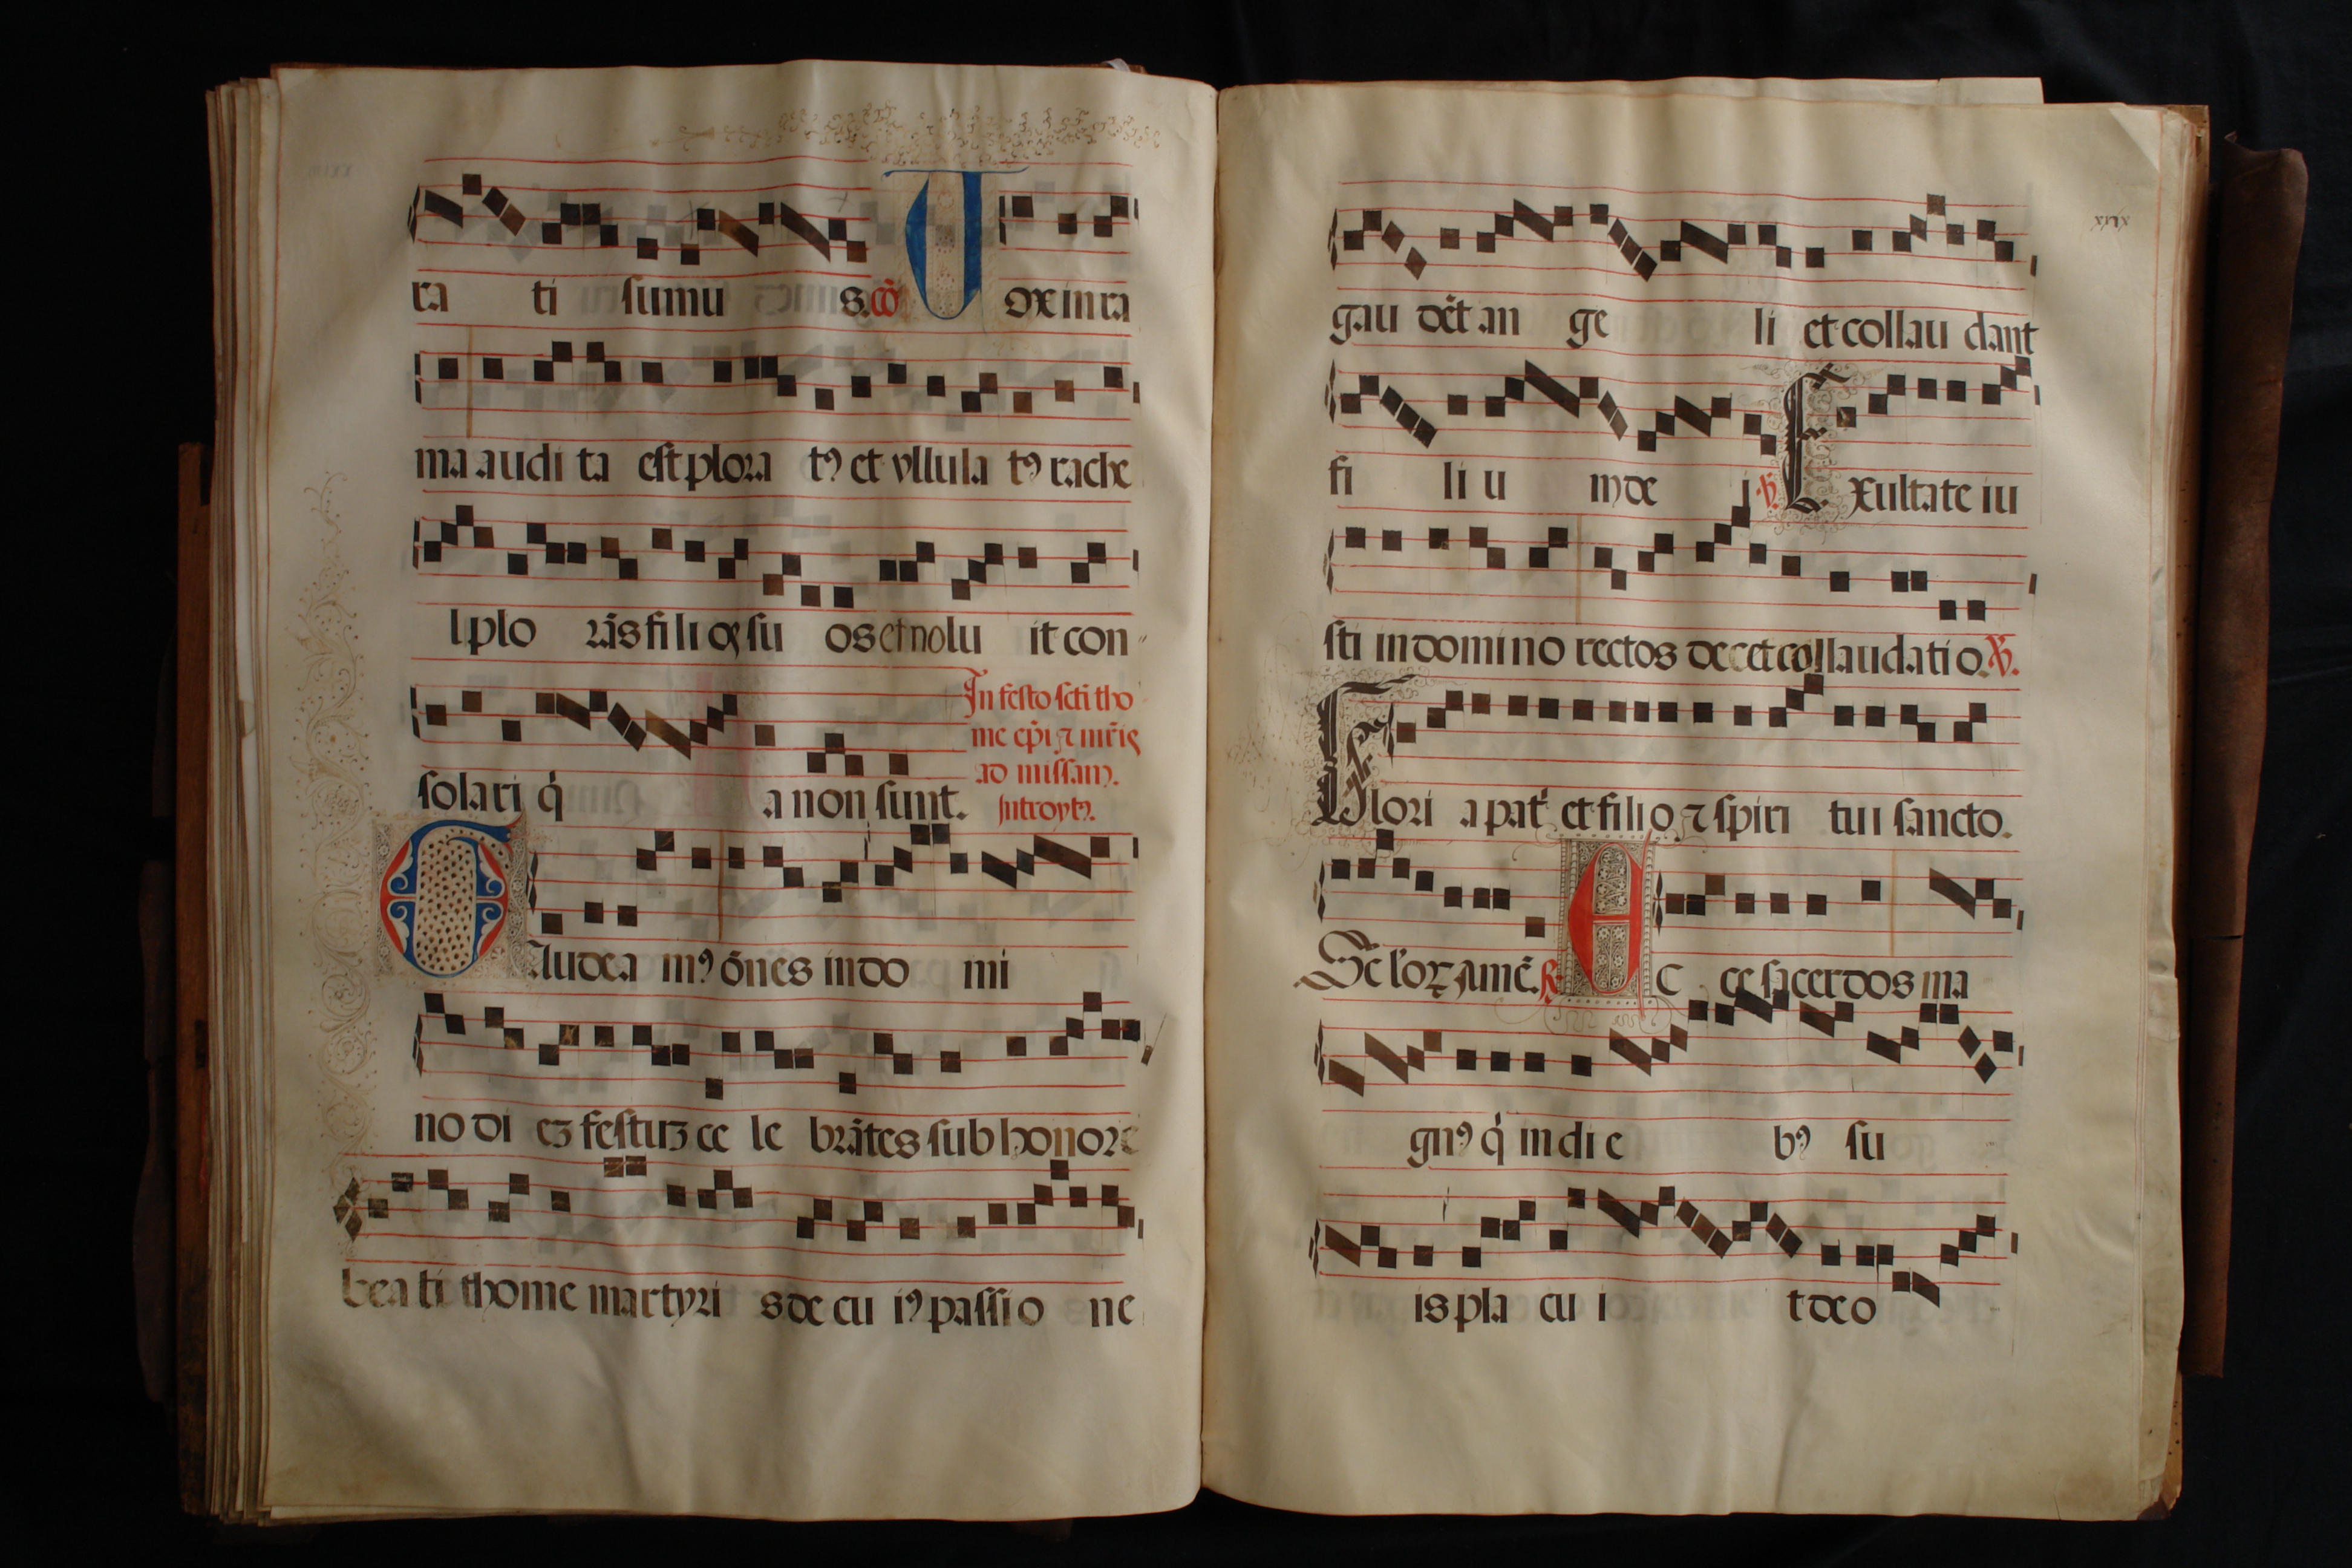 ra ti sumu s. cō V ox in ra
ma audi ta est plora tꝯ et vllula tꝯ rache
l plo rās fili os su os et nolu it con
solari q̇ a non sunt. In festo scti tho
me ep̄i ⁊ mr̄is
ad missam.
Introytꝯ.
G Audea mꝯ ōnes in do mi
no di eʒ festuʒ ce le brātes sub honore
bea ti thome martyri s de cu iꝯ passi o ne
xxix
gau dēt an ge li et collau dant
fi li u m de i ℣. E xultate iu
sti in domino rectos decet collaudatio. ℣.
G lori a pat̉ et filio ⁊ spiri tui sancto.
Seculoꝝ amē. ℟ E c ce sacerdos ma
gnꝯ q̇ in di e bꝯ su
is pla cu i t deo